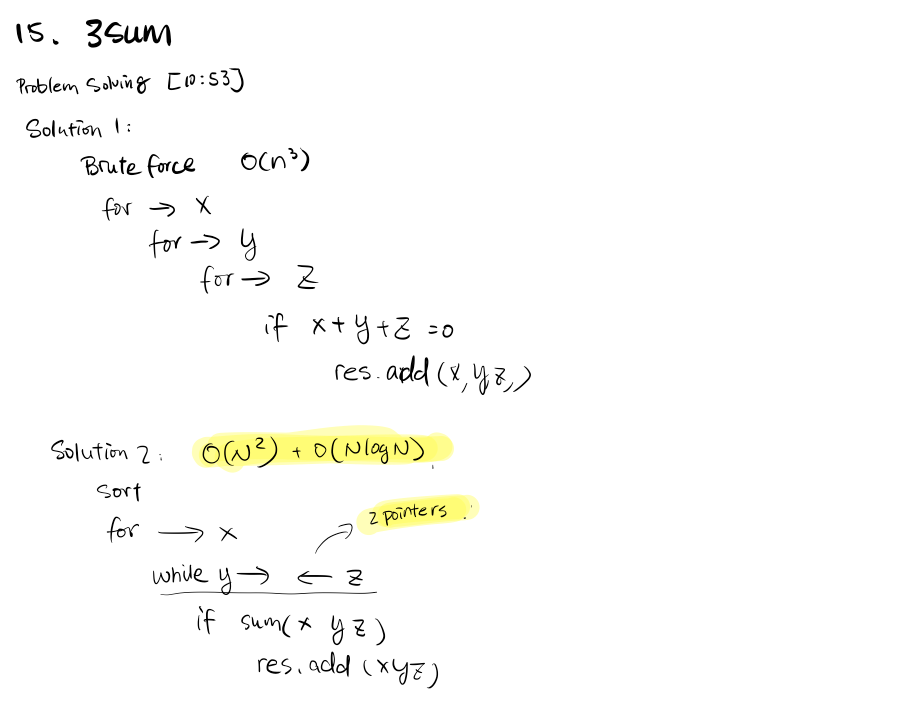 15. 3sum
Problem Solving [10:53]
Solution 1:
Brute force O(n³)
for → x
for → y
for → z
if x+y+z =0
res.add(x,yz,)
Solution 2: O(N²) + O(NlogN)
sort
2 pointers
for → x
while y → ← z
if sum(x y z)
res.add (xyz)